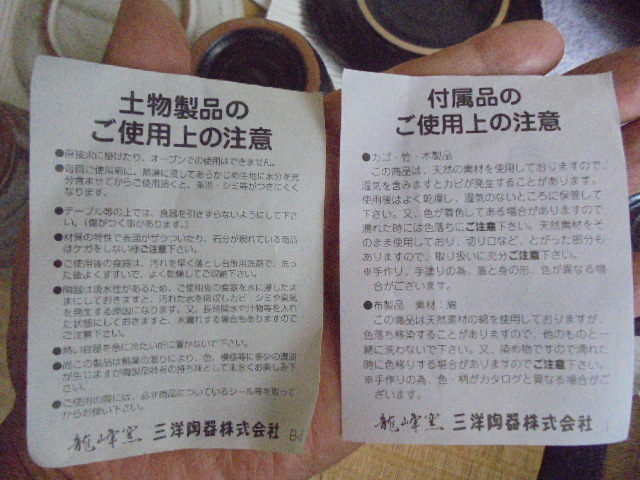 土物製品の
ご使用上の注意
●直接火に掛けたり、オーブンでの使用はできません。
●毎回ご使用前に、熱湯に浸してあらかじめ生地に水分を充
分含ませてからご使用頂くと、茶渋・シミ等がつきにくく
なります。
●テーブル等の上では、食器を引きずらないようにして下さ
い。(傷がつく事があります。)
●材質の特性で表面がザラついたり、石分が現れている商品
はケガをしない様ご注意下さい。
●ご使用後の食器は、汚れを早く落とし台所用洗剤で、洗っ
た後よくすすいで、よく乾燥してご収納下さい。
●陶器は吸水性があるため、ご使用後の食器を水に浸したま
まにしておきますと、汚れた水を吸収しカビ・シミや臭気
を発生する原因になります。又、長時間水や汁物等を入れ
た状態にしておきますと、水漏れする場合もありますので
ご注意下さい。
●熱い容器を急に冷たい所に置かないで下さい。
●尚この製品は釉薬の濃りにより、色、模様等に多少の濃淡
が生じますが陶製品特有の持ち味として末永くお楽しみ下
さい。
●ご使用の際には、必ず商品についているシール等を取って
からお使い下さい。
龍峰窯 三洋陶器株式会社
付属品の
ご使用上の注意
●カゴ・竹・木製品
この商品は、天然の素材を使用しておりますので、
湿気を含みますとカビが発生することがあります。
使用後はよく乾燥し、湿気のないところに保管して
下さい。又、色が着色してある場合がありますので
濡れた時には色落ちにご注意下さい。天然素材をそ
のまま使用しており、切り口など、とがった部分も
ありますので、取り扱いに充分ご注意下さい。
※手作り、手塗りの為、蓋と身の形、色が異なる場
合がございます。
●布製品 素材:綿
この商品は天然素材の綿を使用しておりますが、
色落ち移染することがありますので、他のものと一
緒に洗わないで下さい。又、染め物ですので濡れた
時に色移りする場合がありますのでご注意下さい。
※手作りの為、色・柄がカタログと異なる場合がご
ざいます。
龍峰窯 三洋陶器株式会社